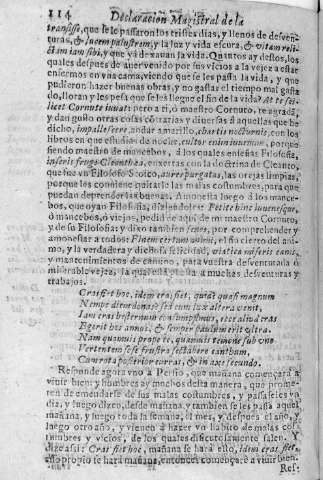 114 Declaracion Magistral de la
transisse, que se le passaron los tristes dias, y llenos de desven-
turas, & lucem palustrem, y la luz y vida escura, & vitam reli-
ctam iam sibi, y que ya dexauan la vida. O quantos ay destos, los
quales despues de auer seruido por sus vicios a la vejez a estar
enfermos en vna cama, viendo que se les passa la vida, y que
pudieron hazer buenas obras, y no gastar el tiempo tan mal gasta
do, lloran y les pesa que se les llegue el fin de la vida? At te sci-
licet Cornute iuuat, pero a ti, ò maestro Cornuto, te agrada,
y dan gusto otras cosas contrarias y diuersas a aquellas que he
dicho, impallescere, andar amarillo, chartis nocturnis, con los
libros en que estudias de noche, cultor enim iuuenum, porque
siendo maestro de mancebos, à los quales enseñas Filosofia,
inseris fruge Cleanthea, enxertas con la doctrina de Cleanto,
que fue vn Filosofo Stoico, aures purgatas, las orejas limpias,
porque les conuiene quitarle las malas costumbres, para que
puedan deprender las buenas. Amonesta luego à los mance-
bos, que oyan Filosofia, Petite hinc iuuenesque,
ò mancebos, ò viejos, pedid de aqui, de mi maestro Cornuto,
y de su Filosofia: y dixo tambien senes, por comprehender y
amonestar a todos: Finem certum animi, el fin cierto del ani-
mo, y la verdadera y dichosa felicidad, viatica miseris canis,
y mantenimientos de camino, para vuestra desuenturada ò
miserable vejez, la qual està puesta a muchas desuenturas y
trabajos.
Cras fiet hoc, idem cras fiet, quid? quasi magnum
Nempe diem donas? sed cum lux altera venit,
Iam cras hesternum consumpsimus, ecce aliud cras
Egerit hos annos, & semper paulum erit vltra.
Nam quamuis prope te, quamuis temone sub vno
Vertentem sese frustra sectabere canthum,
Cum rota posterior curras, & in axe secundo.
Responde agora vno a Persio, que mañana començarà a
viuir bien y hombres ay muchos desta manera, que prome-
ten de emendarse de sus malas costumbres, y passaseles vn
dia, y luego dizen, desde mañana y tambien se les passa aquel
mañana, y luego toda la semana, el mes, y despues el año, y
luego otro año, y vienen à hazer vn habito de malas cos
tumbres y vicios, de los quales dificultosamente salen. Y
dize assi: Cras fiet hoc, mañana se harà esto, idem cras fiet,
esto propio se harà mañana, entonces començarè a viuir bien.
Res-